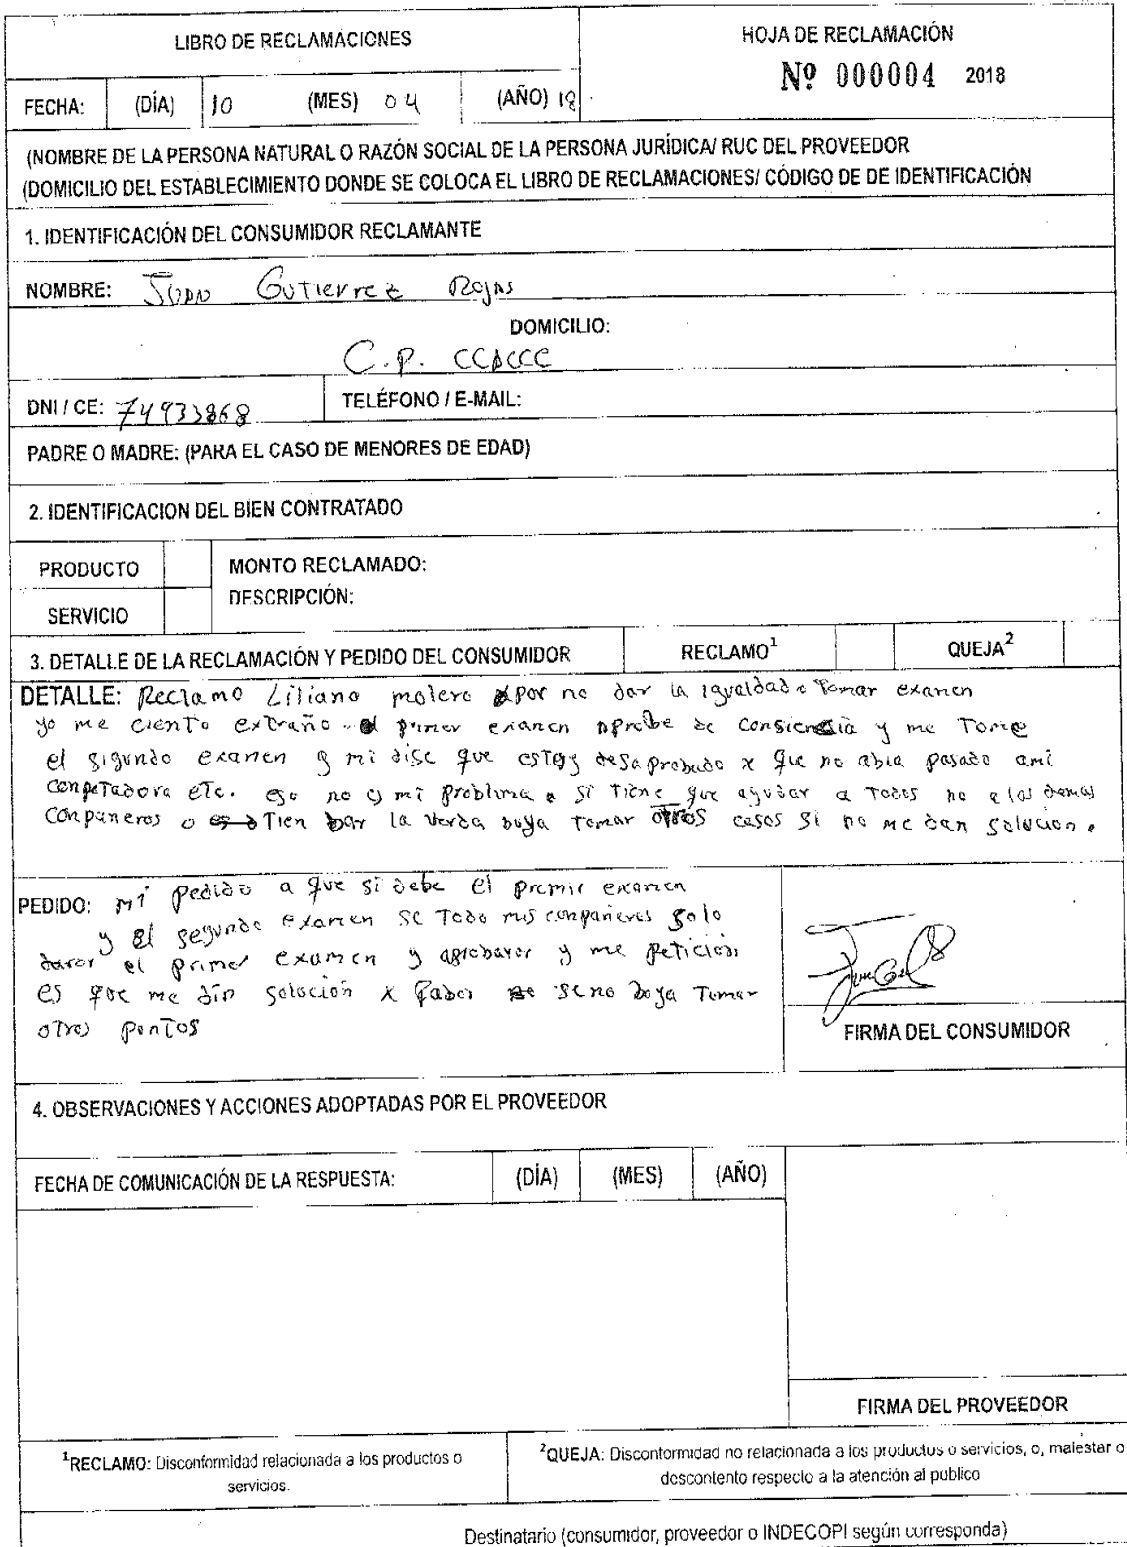 LIBRO DE RECLAMACIONES
HOJA DE RECLAMACIÓN
Nº 000004 2018
FECHA: (DÍA) 10 (MES) 04 (AÑO) 18
(NOMBRE DE LA PERSONA NATURAL O RAZÓN SOCIAL DE LA PERSONA JURÍDICA/ RUC DEL PROVEEDOR
(DOMICILIO DEL ESTABLECIMIENTO DONDE SE COLOCA EL LIBRO DE RECLAMACIONES/ CÓDIGO DE DE IDENTIFICACIÓN
1. IDENTIFICACIÓN DEL CONSUMIDOR RECLAMANTE
NOMBRE: Juan Gutierrez Rojas
DOMICILIO:
C.P. CCACCC
DNI / CE: 74933868 TELÉFONO / E-MAIL:
PADRE O MADRE: (PARA EL CASO DE MENORES DE EDAD)
2. IDENTIFICACION DEL BIEN CONTRATADO
PRODUCTO MONTO RECLAMADO:
SERVICIO DESCRIPCIÓN:
3. DETALLE DE LA RECLAMACIÓN Y PEDIDO DEL CONSUMIDOR RECLAMO1 QUEJA2
DETALLE: Reclamo Liliano molero por no dar la igualdad a Tomar examen
yo me ciento extraño el primer examen aprobe de consiencia y me Tome
el sigundo examen y mi dise que estoy desaprobado x que no abia pasado ami
conpetadora etc. eso no es mi problima si tiene que ayudar a Todos no a los demas
conpaneros o Tien dar la verda boya tomar otros casos si no me dan solucion.
PEDIDO: mi pedido a que si debe el premir examen
y el segundo examen se Todo mis conpañeros solo
daror el primer examen y aprobaror y me peticion
es que me din solocion x fabor seno boya Tomar
otros pontos
FIRMA DEL CONSUMIDOR
4. OBSERVACIONES Y ACCIONES ADOPTADAS POR EL PROVEEDOR
FECHA DE COMUNICACIÓN DE LA RESPUESTA: (DÍA) (MES) (AÑO)
FIRMA DEL PROVEEDOR
1RECLAMO: Disconformidad relacionada a los productos o
servicios.
2QUEJA: Disconformidad no relacionada a los productos o servicios, o, malestar o
descontento respecto a la atención al publico
Destinatario (consumidor, proveedor o INDECOPI según corresponda)